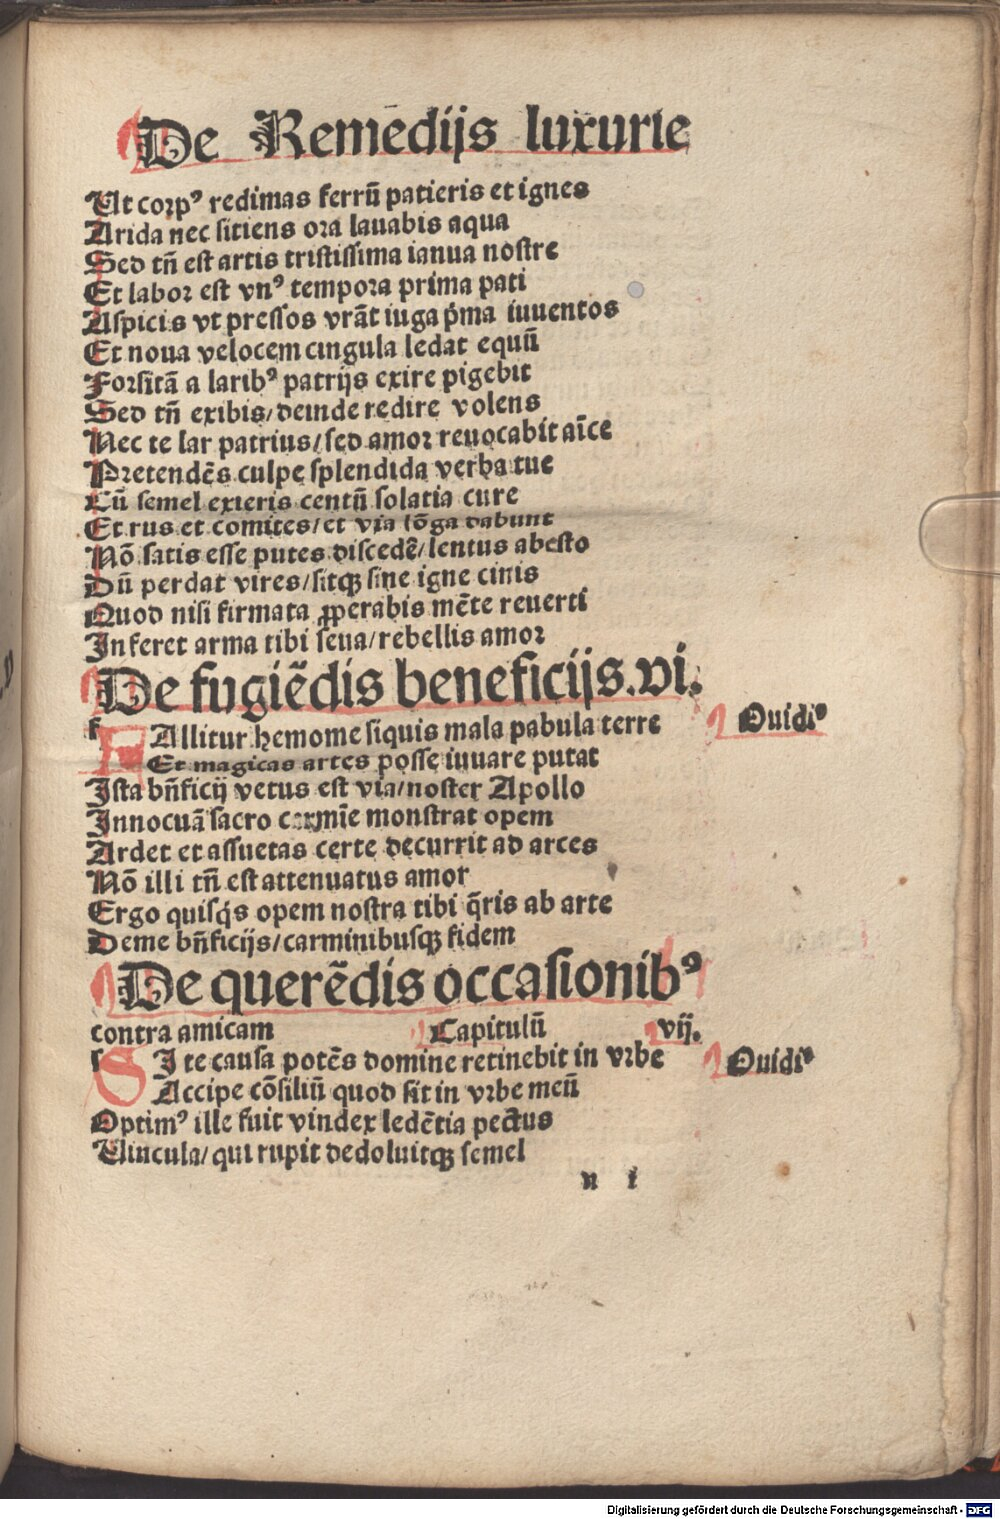 De Remēdijs luxurie
Ut corpꝰ redimas ferrū patieris et ignes
Arida nec sitiens ora lauabis aqua
Sed tñ est artis tristissima ianua nostre
Et labor est vnꝰ tempora prima pati
Aspicis vt pressos vrāt iuga p̄ma iuuentos
Et noua velocem cingula ledat equū
Forsitā a laribꝰ patrijs exire pigebit
Sed tñ exibis/deinde redire volens
Nec te lar patrius/sed amor reuocabit aīce
Pretendēs culpe splendida verba tue
Cū semel exieris centū solatia cure
Et rus et comites/et via lōga dabunt
Nō satis esse putes discedē/lentus abesto
Dū perdat vires/sitqꝫ sine igne cinis
Quod nisi firmata ꝓperabis mēte reuerti
Inferet arma tibi seua/rebellis amor
De fugiēdis beneficijs.vi.
f FAllitur hemome siquis mala pabula terre Ouidiꝰ
Et magicas artes posse iuuare putat
Ista bn̄ficij vetus est via/noster Apollo
Innocuā sacro carmīe monstrat opem
Ardet et assuetas certe decurrit ad arces
Nō illi tñ est attenuatus amor
Ergo quisq́s opem nostra tibi q̄ris ab arte
Deme bn̄ficijs/carminibusqꝫ fidem
De querēdis occasionibꝰ
contra amicam Capitulū vij.
s SI te causa potēs domine retinebit in vrbe Ouidiꝰ
Accipe cōsiliū quod sit in vrbe meū
Optimꝰ ille fuit vindex ledētia pectus
Uincula/qui rupit dedoluitqꝫ semel
n i
Digitalisierung gefördert durch die Deutsche Forschungsgemeinschaft - DFG